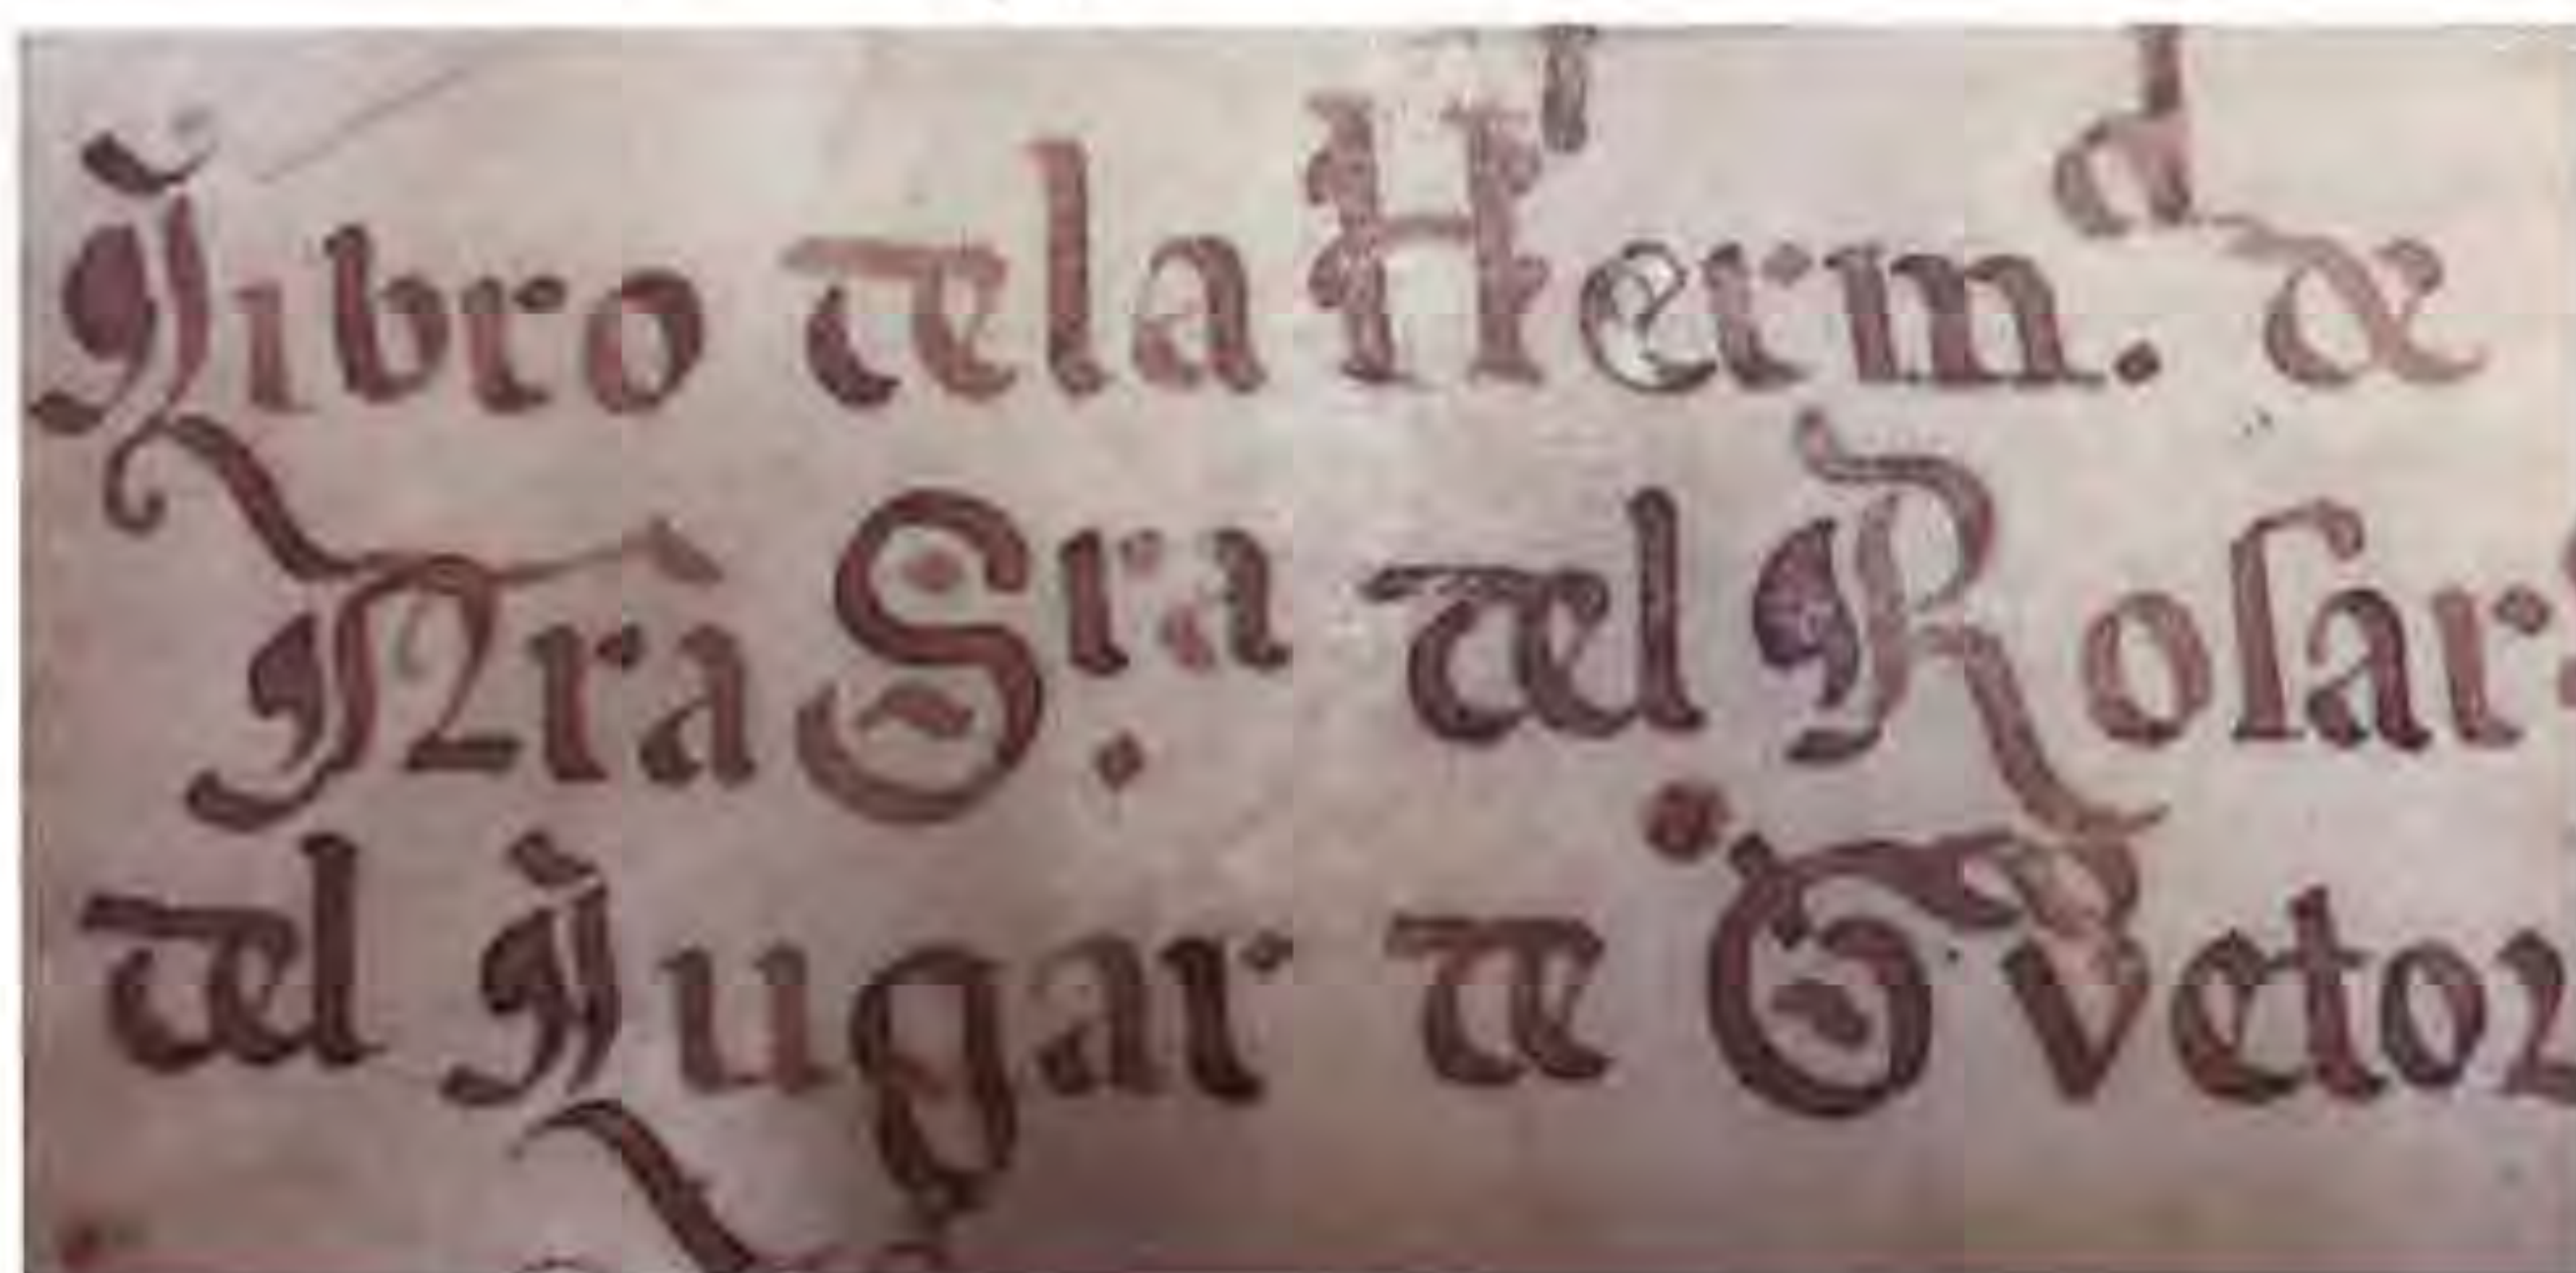 Libro dela Herm.d de
Nrà Sra. del Rosar
del Lugar de